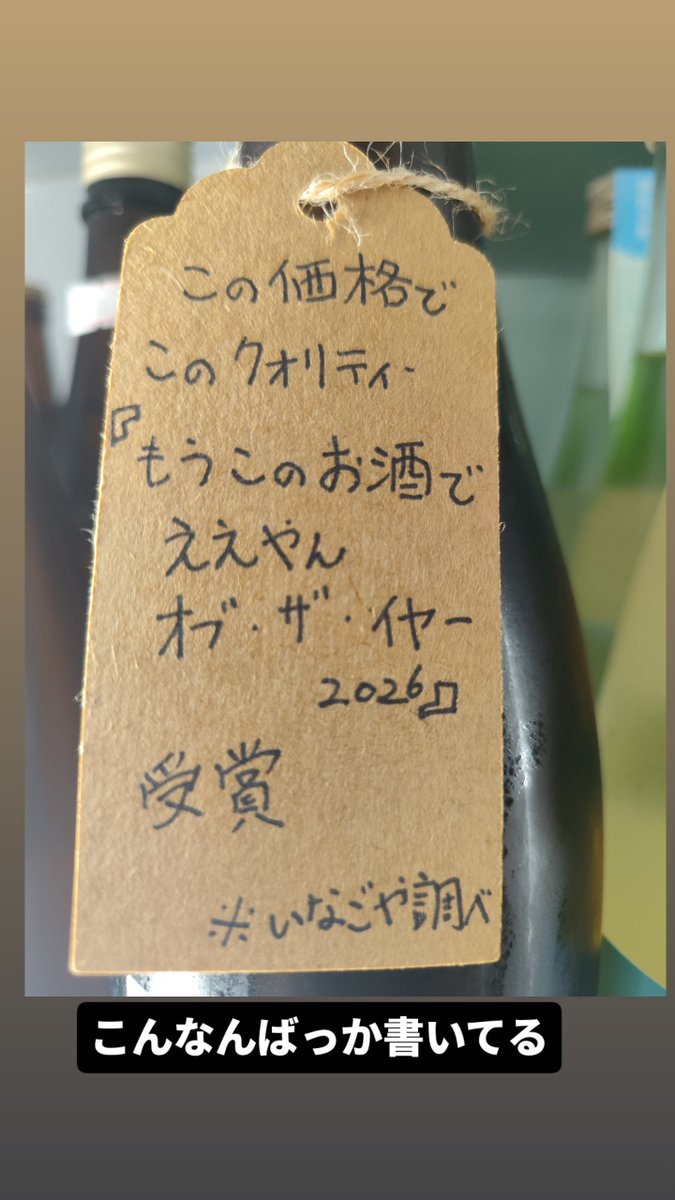 この価格で
このクオリティー
『もうこのお酒で
ええやん
オブ・ザ・イヤー
2026』
受賞
※いなごや調べ
こんなんばっか書いてる